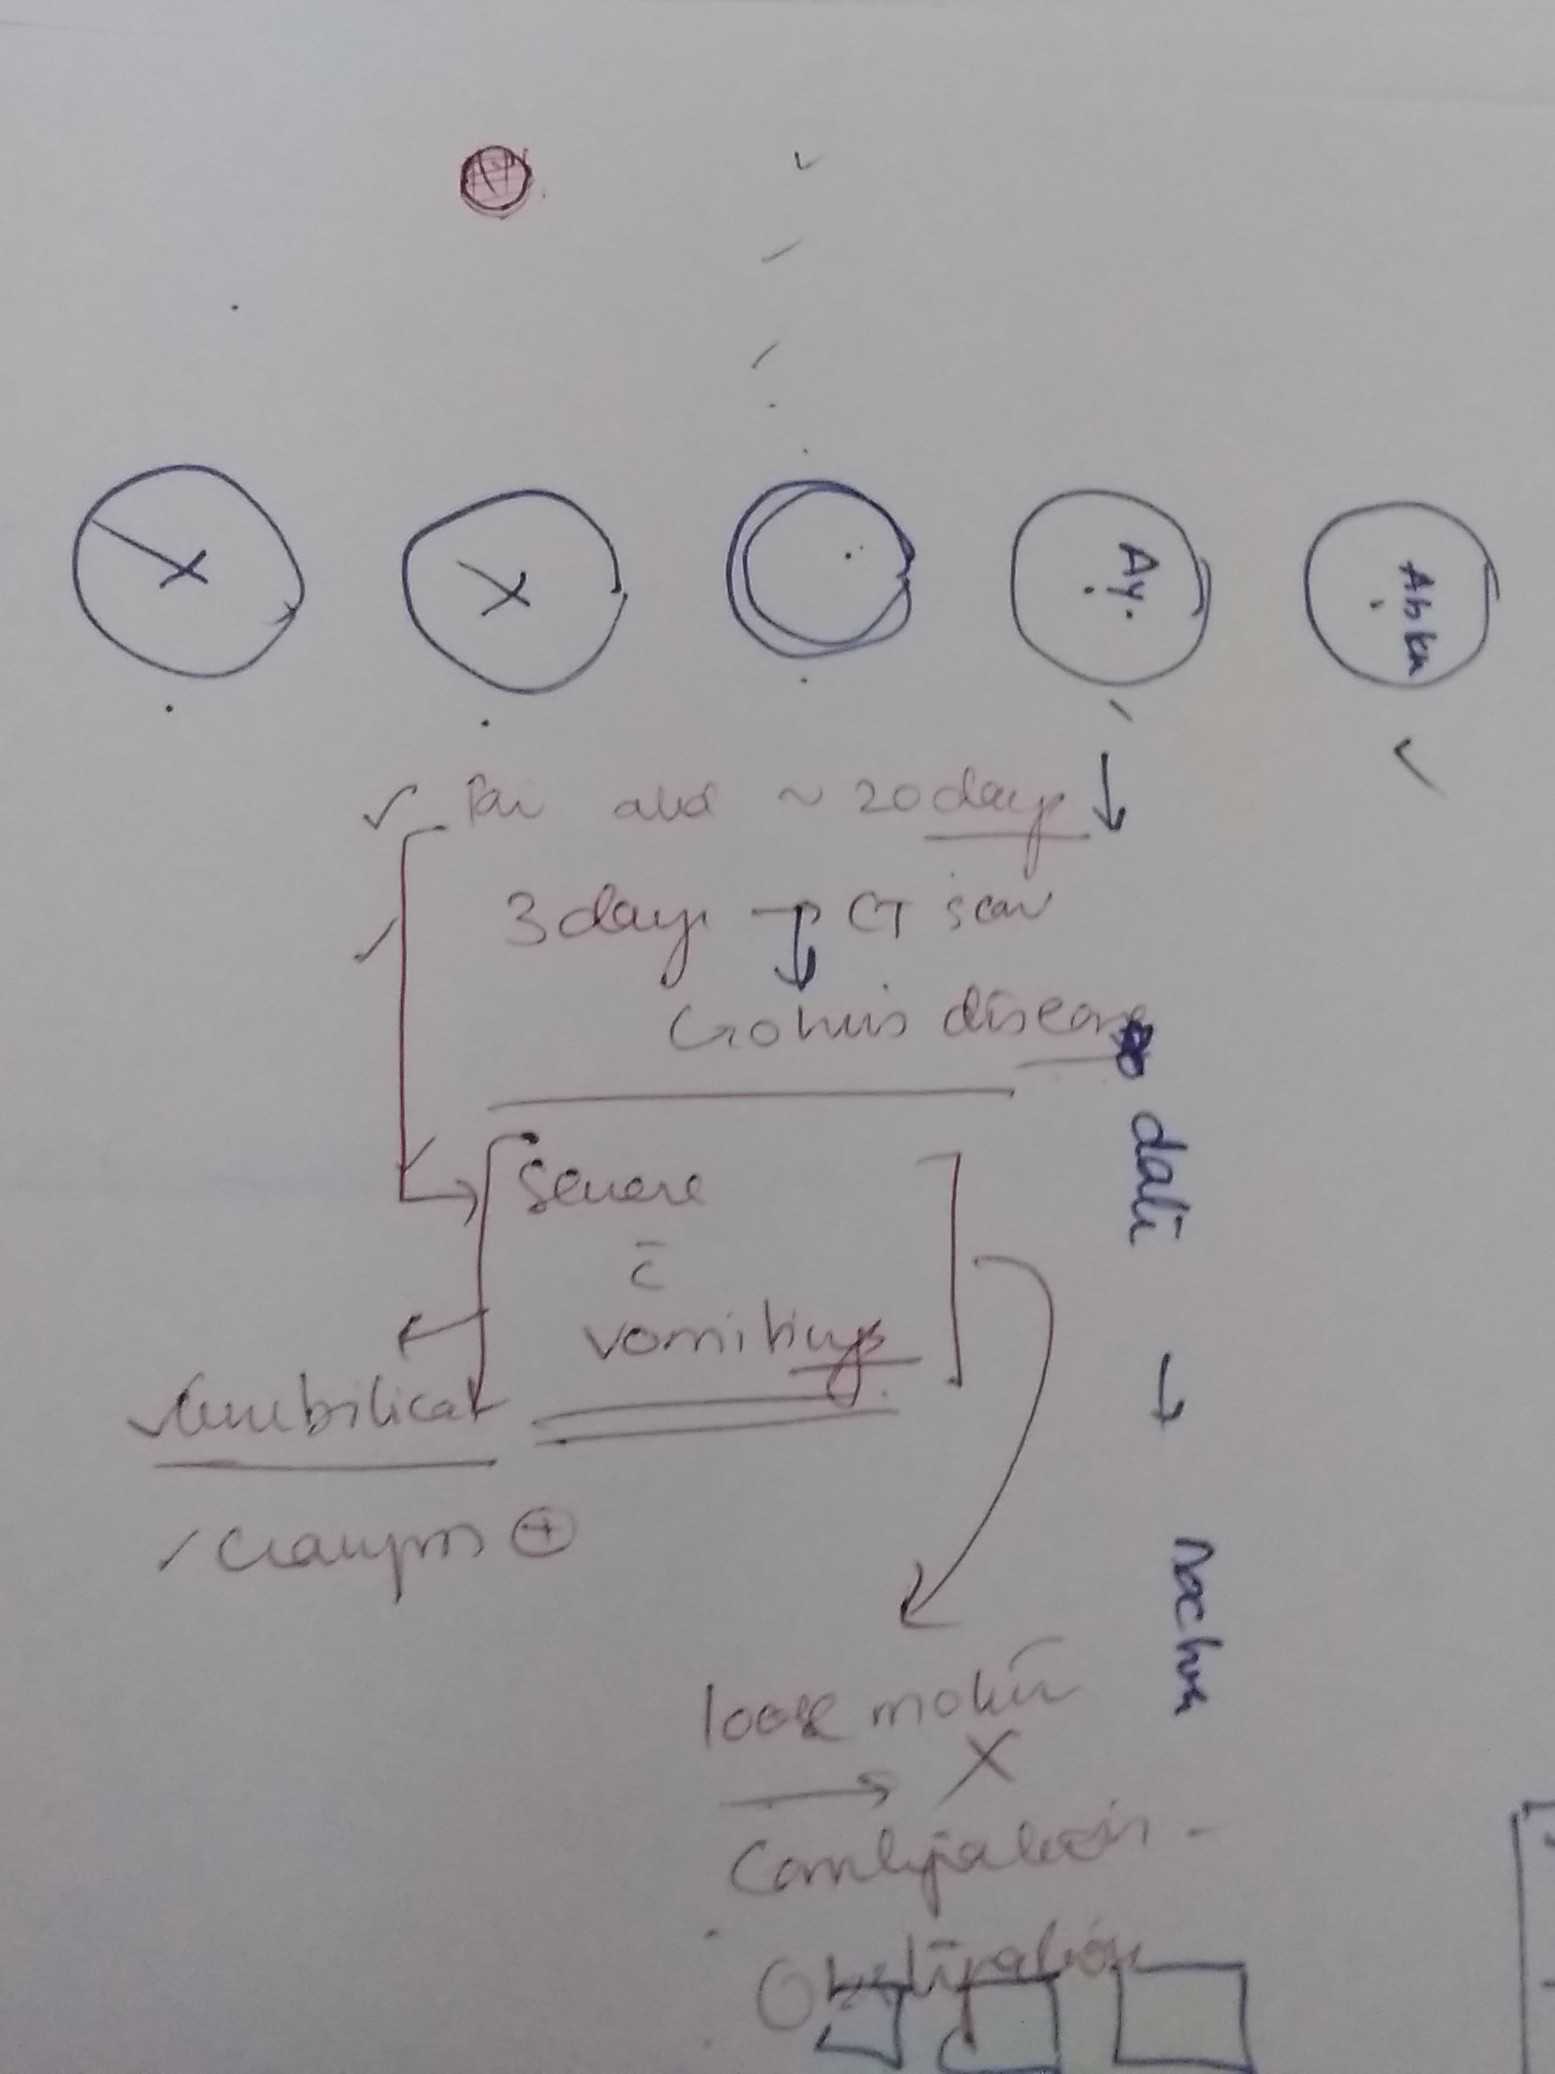 Ay.
Abku
✓ Pai abd ~ 20 days
3 days → CT scan
Crohn's disease
Severe
c̄
vomitings
✓ umbilical
✓ cramps ⊕
loose motion
→ X
Constipation -
Obstipation
dali → nachva